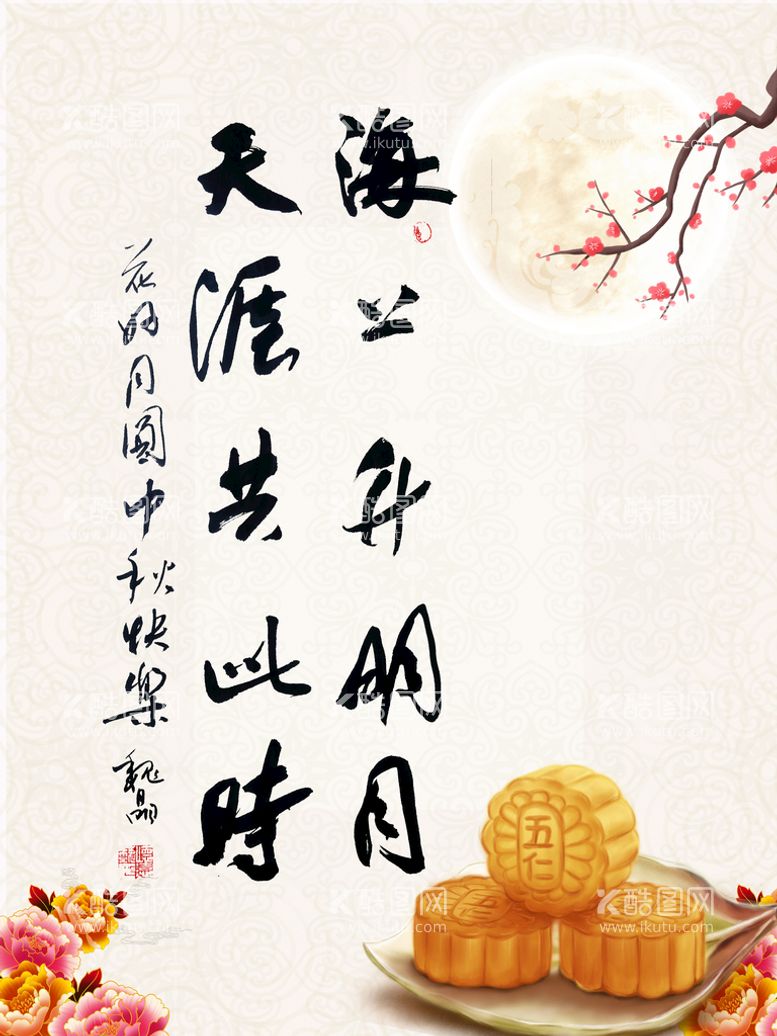 海上升明月
天涯共此時
花好月圓中秋快樂 魏晶
五仁
酷图网
www.ikutu.com